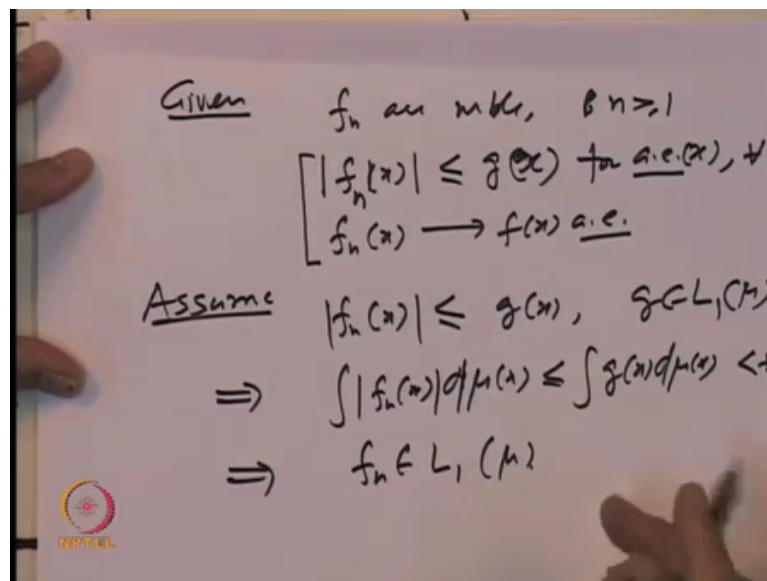 Given fₙ are mble, & n ≥ 1
|fₙ(x)| ≤ g(x) for a.e.(x), ∀
fₙ(x) ⟶ f(x) a.e.
Assume |fₙ(x)| ≤ g(x), g ∈ L₁(μ)
⟹ ∫|fₙ(x)|dμ(x) ≤ ∫g(x)dμ(x) < +
⟹ fₙ ∈ L₁(μ)
NPTEL